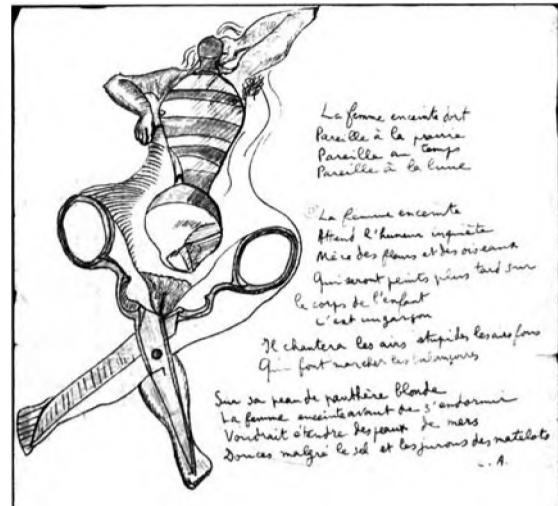 La femme enceinte dort
Pareille à la prairie
Pareille au temps
Pareille à la lune
La femme enceinte
Attend l'humeur inquiète
Mère des fleurs et des oiseaux
Qui seront peints plus tard sur
le corps de l'enfant
c'est un garçon
Il chantera les airs stupides les airs fous
Qui font marcher les balançoires
Sur sa peau de panthère blonde
La femme enceinte avant de s'endormir
Voudrait étendre des peaux de mers
Douces malgré le sel et les jurons des matelots
L. A.